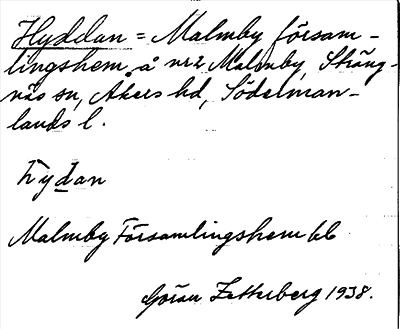 Hyddan = Malmby försam-
lingshem å nr 2 Malmby, Sträng-
näs sn, Åkers hd, Söderman-
lands l.
hydan
Malmby Församlingshem bb
Göran Zetterberg 1938.